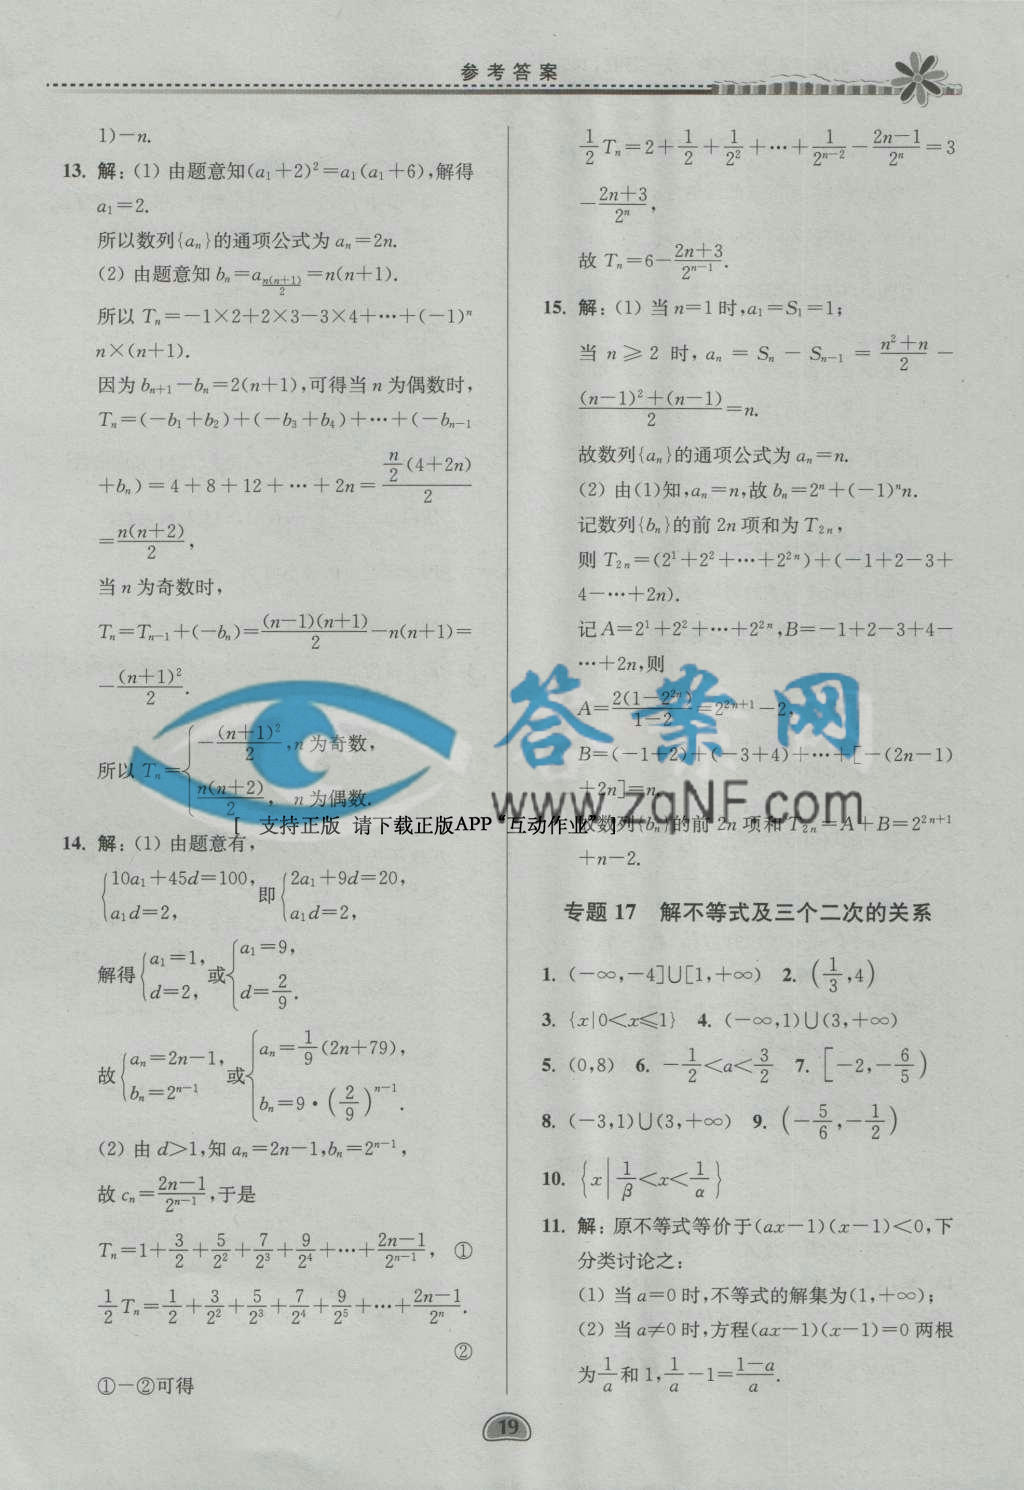 参考答案
1)-n.
13. 解:(1) 由题意知(a₁+2)²=a₁(a₁+6),解得
a₁=2.
所以数列{aₙ}的通项公式为 aₙ=2n.
(2) 由题意知 bₙ=a_{n(n+1)/2}=n(n+1).
所以 Tₙ=-1×2+2×3-3×4+⋯+(-1)ⁿ
n×(n+1).
因为 bₙ₊₁-bₙ=2(n+1),可得当 n 为偶数时,
Tₙ=(-b₁+b₂)+(-b₃+b₄)+⋯+(-bₙ₋₁
+bₙ)=4+8+12+⋯+2n=\frac{\frac{n}{2}(4+2n)}{2}
=\frac{n(n+2)}{2},
当 n 为奇数时,
Tₙ=Tₙ₋₁+(-bₙ)=\frac{(n-1)(n+1)}{2}-n(n+1)=
-\frac{(n+1)²}{2}.
所以 Tₙ={-\frac{(n+1)²}{2},n 为奇数,
\frac{n(n+2)}{2}, n 为偶数.
[ 支持正版 请下载正版APP "互动作业" ]
14. 解:(1) 由题意有,
{10a₁+45d=100, a₁d=2, 即{2a₁+9d=20, a₁d=2,
解得{a₁=1, d=2, 或{a₁=9, d=\frac{2}{9}.
故{aₙ=2n-1, bₙ=2ⁿ⁻¹ 或{aₙ=\frac{1}{9}(2n+79), bₙ=9·(\frac{2}{9})ⁿ⁻¹.
(2) 由 d>1,知 aₙ=2n-1,bₙ=2ⁿ⁻¹,
故 cₙ=\frac{2n-1}{2ⁿ⁻¹},于是
Tₙ=1+\frac{3}{2}+\frac{5}{2²}+\frac{7}{2³}+\frac{9}{2⁴}+⋯+\frac{2n-1}{2ⁿ⁻¹}, ①
\frac{1}{2}Tₙ=\frac{1}{2}+\frac{3}{2²}+\frac{5}{2³}+\frac{7}{2⁴}+\frac{9}{2⁵}+⋯+\frac{2n-1}{2ⁿ}.
②
①-②可得
\frac{1}{2}Tₙ=2+\frac{1}{2}+\frac{1}{2²}+⋯+\frac{1}{2ⁿ⁻²}-\frac{2n-1}{2ⁿ}=3
-\frac{2n+3}{2ⁿ},
故 Tₙ=6-\frac{2n+3}{2ⁿ⁻¹}.
15. 解:(1) 当 n=1 时,a₁=S₁=1;
当 n≥2 时,aₙ=Sₙ-Sₙ₋₁=\frac{n²+n}{2}-
\frac{(n-1)²+(n-1)}{2}=n.
故数列{aₙ}的通项公式为 aₙ=n.
(2) 由(1)知,aₙ=n,故 bₙ=2ⁿ+(-1)ⁿn.
记数列{bₙ}的前 2n 项和为 T₂ₙ,
则 T₂ₙ=(2¹+2²+⋯+2²ⁿ)+(-1+2-3+
4-⋯+2n).
记 A=2¹+2²+⋯+2²ⁿ,B=-1+2-3+4-
⋯+2n,则
A=\frac{2(1-2²ⁿ)}{1-2}=2²ⁿ⁺¹-2,
B=(-1+2)+(-3+4)+⋯+[-(2n-1)
+2n]=n.
故数列{bₙ}的前 2n 项和 T₂ₙ=A+B=2²ⁿ⁺¹
+n-2.
答案网
www.zqNF.com
专题 17 解不等式及三个二次的关系
1. (-∞,-4]∪[1,+∞) 2. (\frac{1}{3},4)
3. {x|0<x≤1} 4. (-∞,1)∪(3,+∞)
5. (0,8) 6. -\frac{1}{2}<a<\frac{3}{2} 7. [-2,-\frac{6}{5})
8. (-3,1)∪(3,+∞) 9. (-\frac{5}{6},-\frac{1}{2})
10. {x|\frac{1}{β}<x<\frac{1}{α}}
11. 解:原不等式等价于(ax-1)(x-1)<0,下
分类讨论之:
(1) 当 a=0 时,不等式的解集为(1,+∞);
(2) 当 a≠0 时,方程(ax-1)(x-1)=0 两根
为\frac{1}{a}和 1,\frac{1}{a}-1=\frac{1-a}{a}.
19